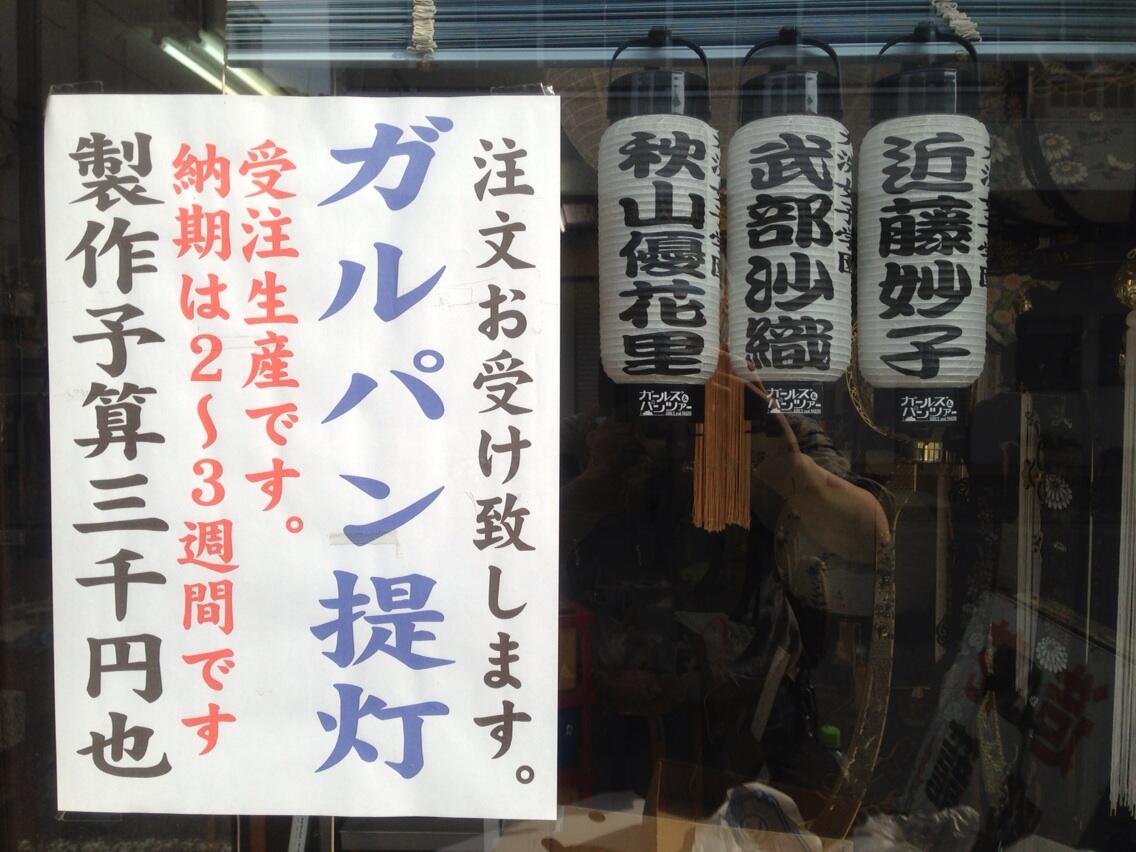 注文お受け致します。
ガルパン提灯
受注生産です。
納期は2～3週間です
製作予算三千円也
近藤妙子
武部沙織
秋山優花里
ガールズ&
パンツァー
ガールズ&
パンツァー
ガールズ&
パンツァー